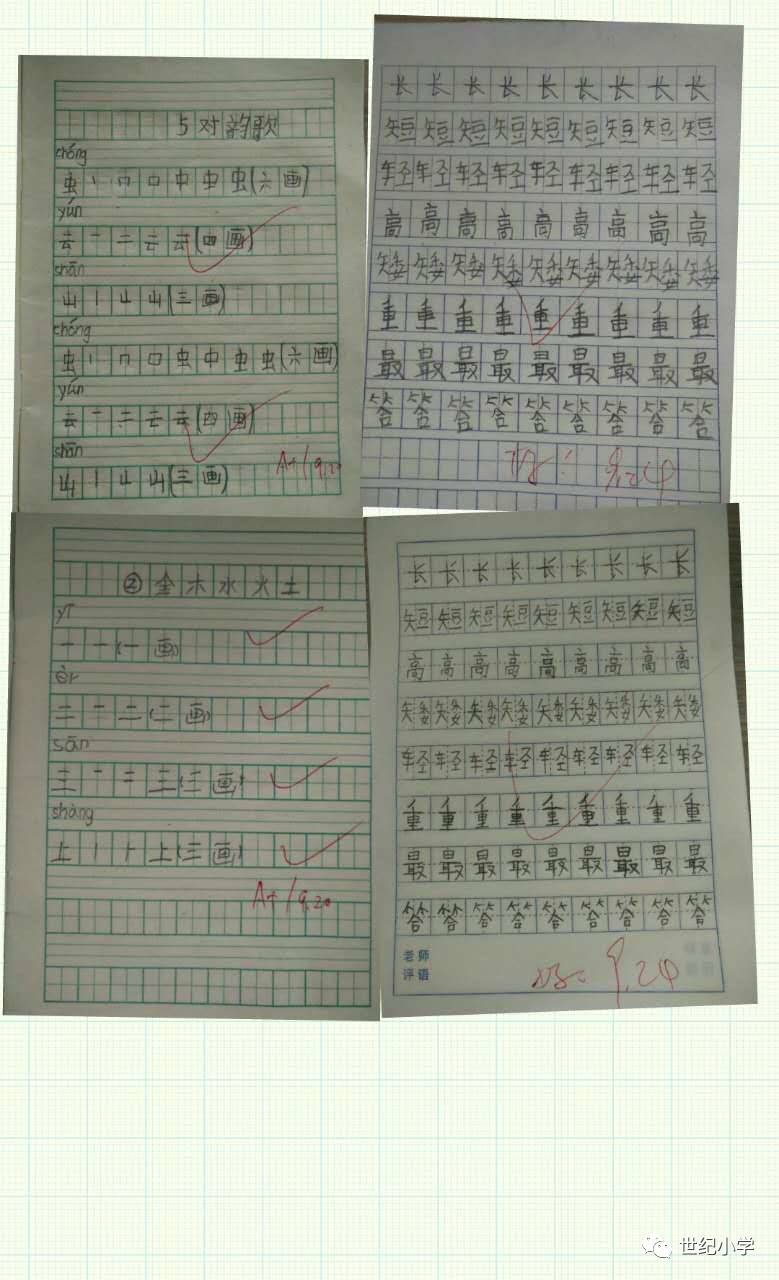 5 对韵歌
chóng
虫 丨 冖 口 中 虫 虫(六画)
yún
云 一 二 云 云(四画)
shān
山 丨 山 山(三画)
chóng
虫 丨 冖 口 虫 中 虫 虫(六画)
yún
云 一 二 云 云(四画)
shān
山 丨 山 山(三画)
A+ 9.20
长 长 长 长 长 长 长 长 长
短 短 短 短 短 短 短 短 短
轻 轻 轻 轻 轻 轻 轻 轻 轻
高 高 高 高 高 高 高 高 高
矮 矮 矮 矮 矮 矮 矮 矮 矮
重 重 重 重 重 重 重 重 重
最 最 最 最 最 最 最 最 最
答 答 答 答 答 答 答 答 答
9.24
② 金 木 水 火 土
yī
一 一 (一画)
èr
二 一 二 (二画)
sān
三 一 二 三 (三画)
shàng
上 丨 卜 上 (三画)
A+ 9.20
长 长 长 长 长 长 长 长 长
短 短 短 短 短 短 短 短 短
高 高 高 高 高 高 高 高 高
矮 矮 矮 矮 矮 矮 矮 矮 矮
轻 轻 轻 轻 轻 轻 轻 轻 轻
重 重 重 重 重 重 重 重 重
最 最 最 最 最 最 最 最 最
答 答 答 答 答 答 答 答 答
老师
评语
9.24
世纪小学